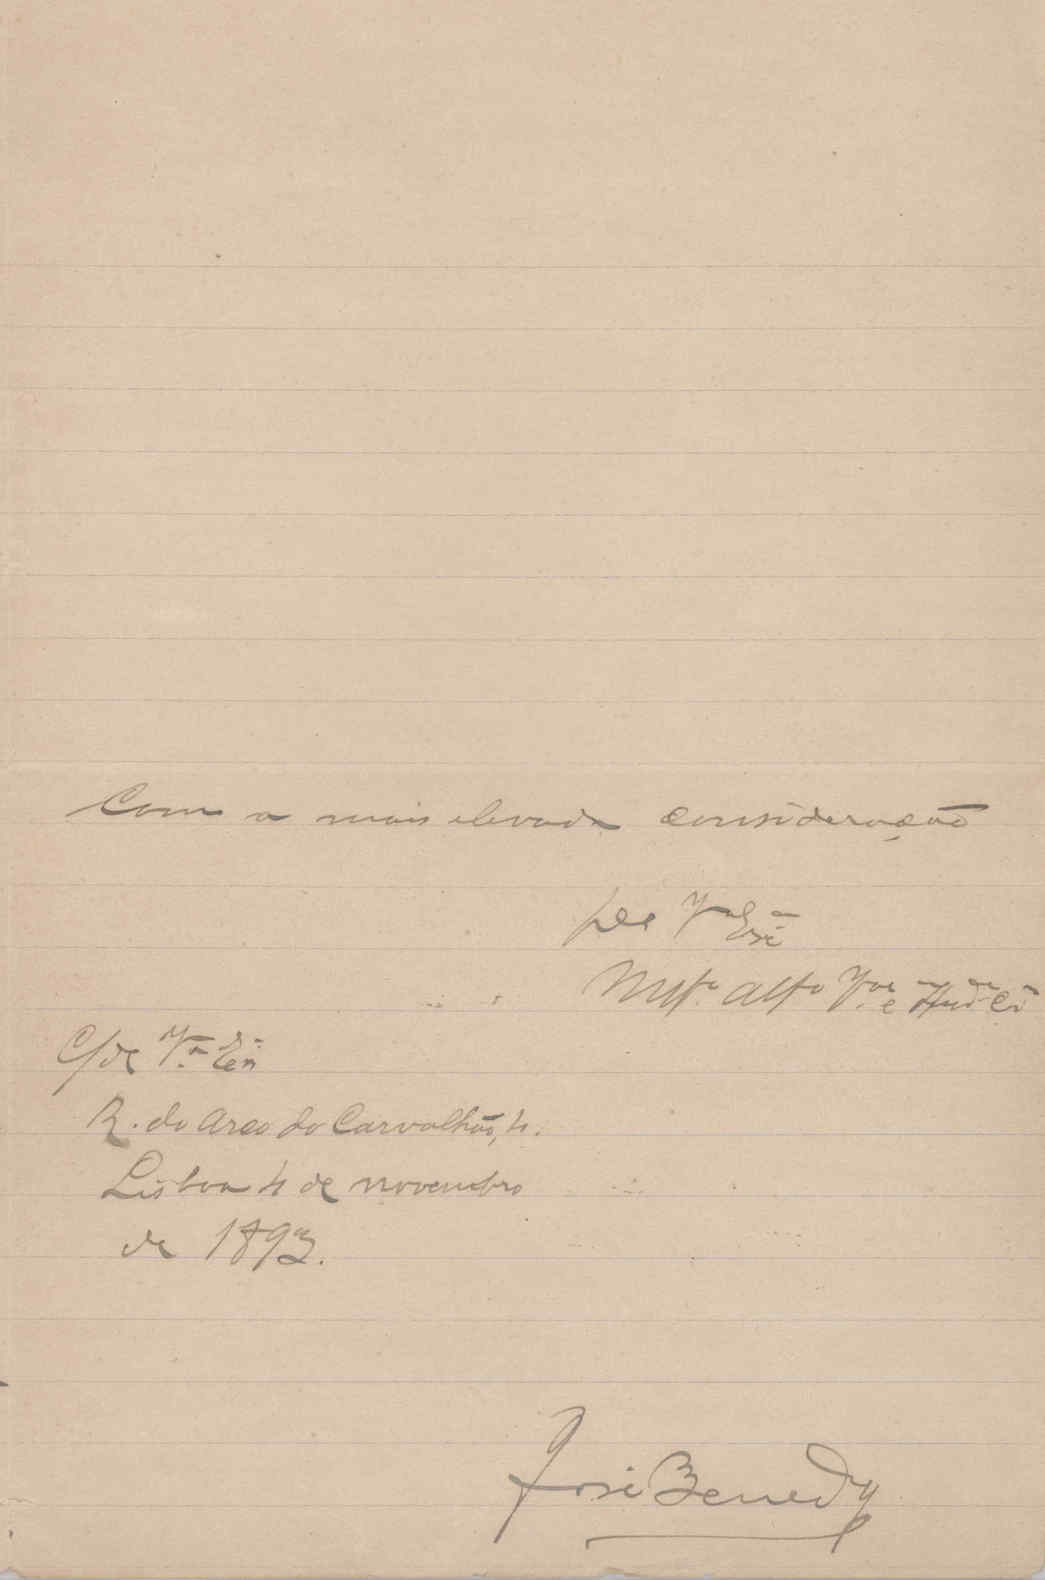 Com a mais elevada consideração
De V. Exª
Mtº attº Vor e
C/de V. Exª
R. do Arco do Carvalhão, 4.
Lisboa 4 de novembro
de 1893.
José Benedy